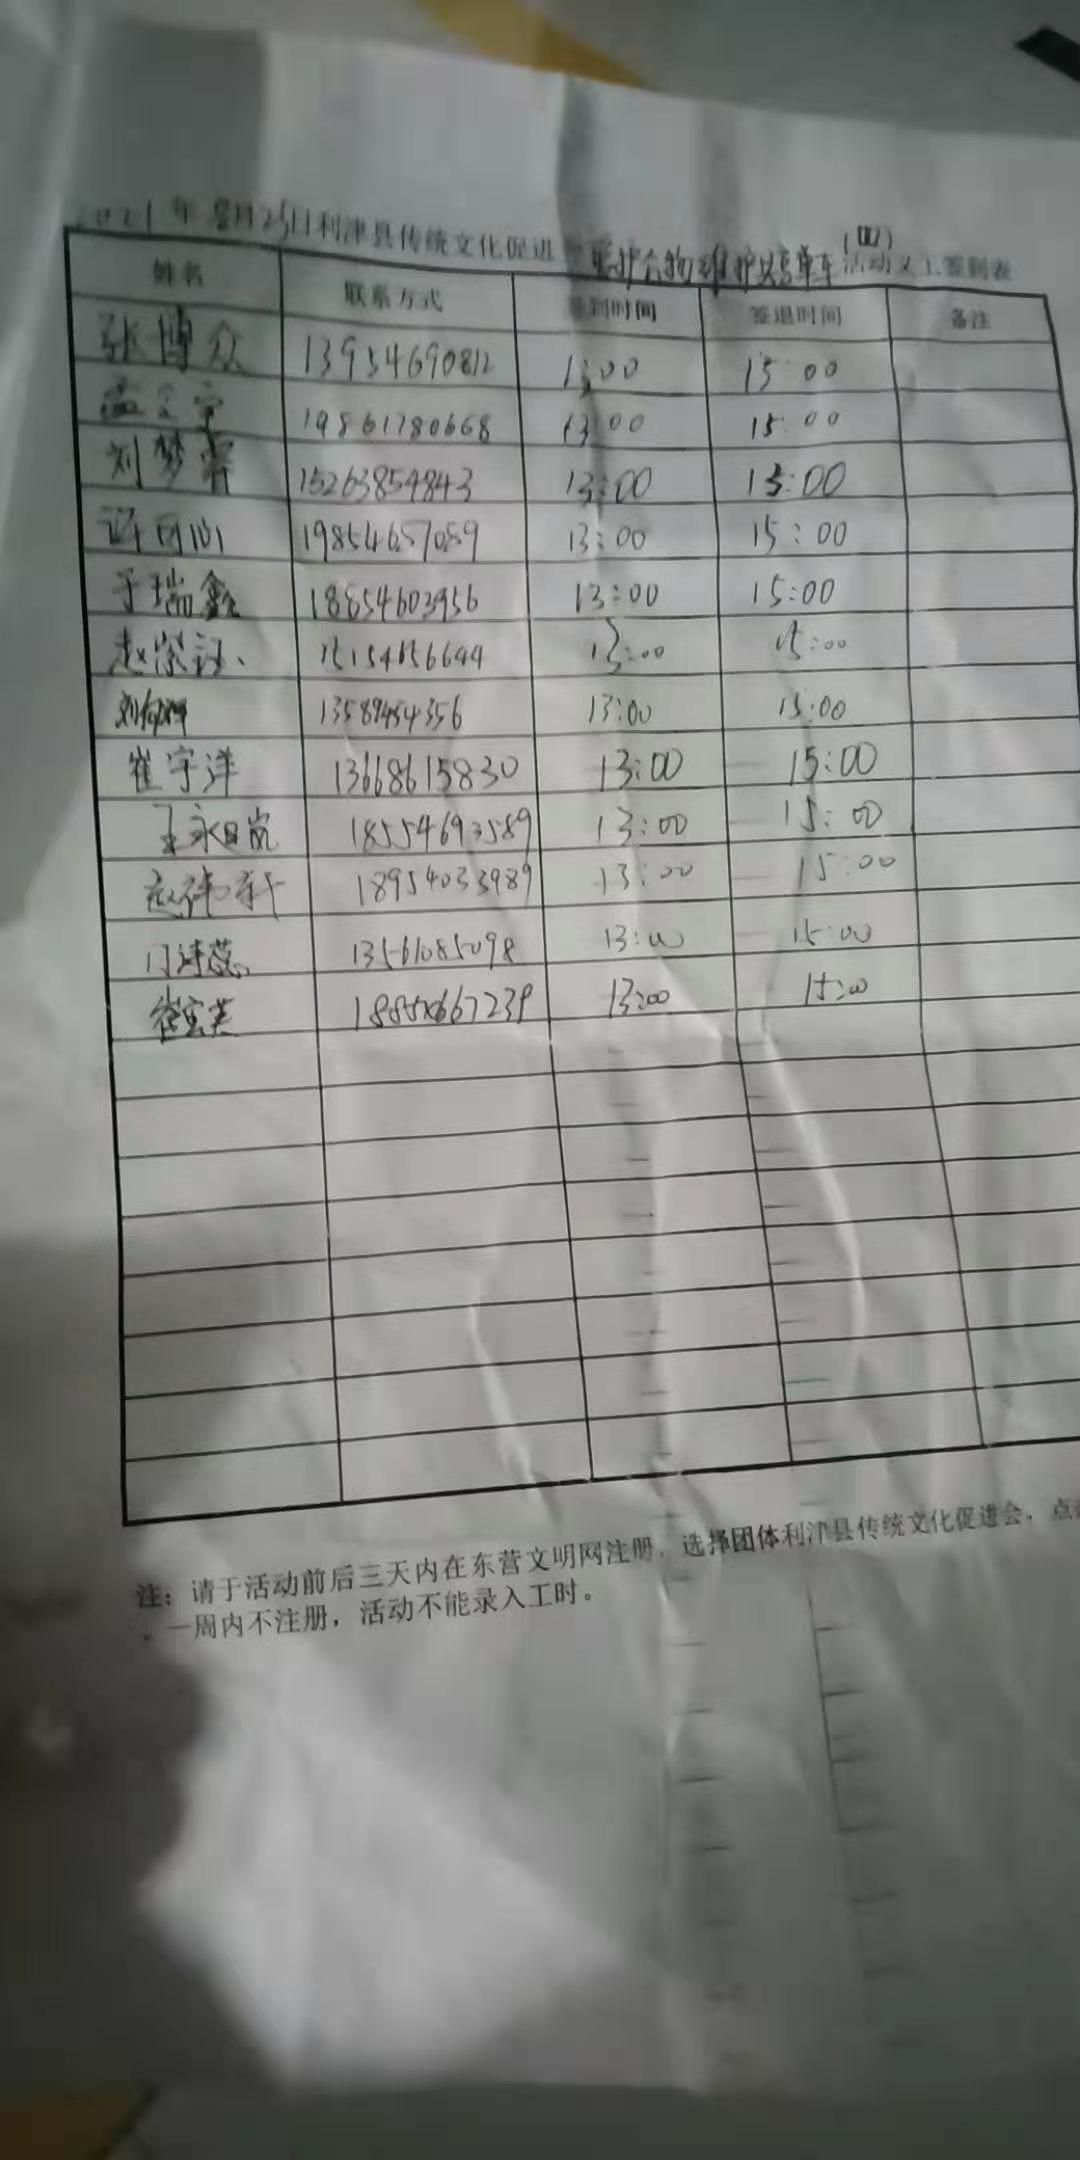 2021年8月25日利津县传统文化促进 维护共享单车(四)活动义工签到表
姓名 联系方式 签到时间 签退时间 备注
张博众 13954690812 13:00 15:00
19861780668 13:00 15:00
刘梦霏 15263854843 13:00 15:00
许可心 19854657059 13:00 15:00
于瑞鑫 18854603956 13:00 15:00
赵 13:00 15:00
13:00 15:00
崔宇洋 13668615830 13:00 15:00
18554693589 13:00 15:00
18954033989 13:00 15:00
13561085098 13:00 15:00
13:00 15:00
注：请于活动前后三天内在东营文明网注册，选择团体利津县传统文化促进会，点
一周内不注册，活动不能录入工时。